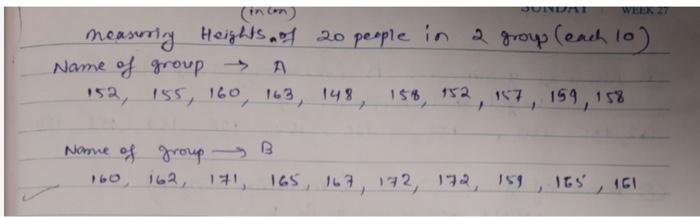 SUNDAY WEEK 27
(in cm)
measuring Heights of 20 people in 2 group (each 10)
Name of group → A
152, 155, 160, 163, 148, 158, 152, 157, 159, 158
Name of group → B
160, 162, 171, 165, 167, 172, 172, 159, 165, 161